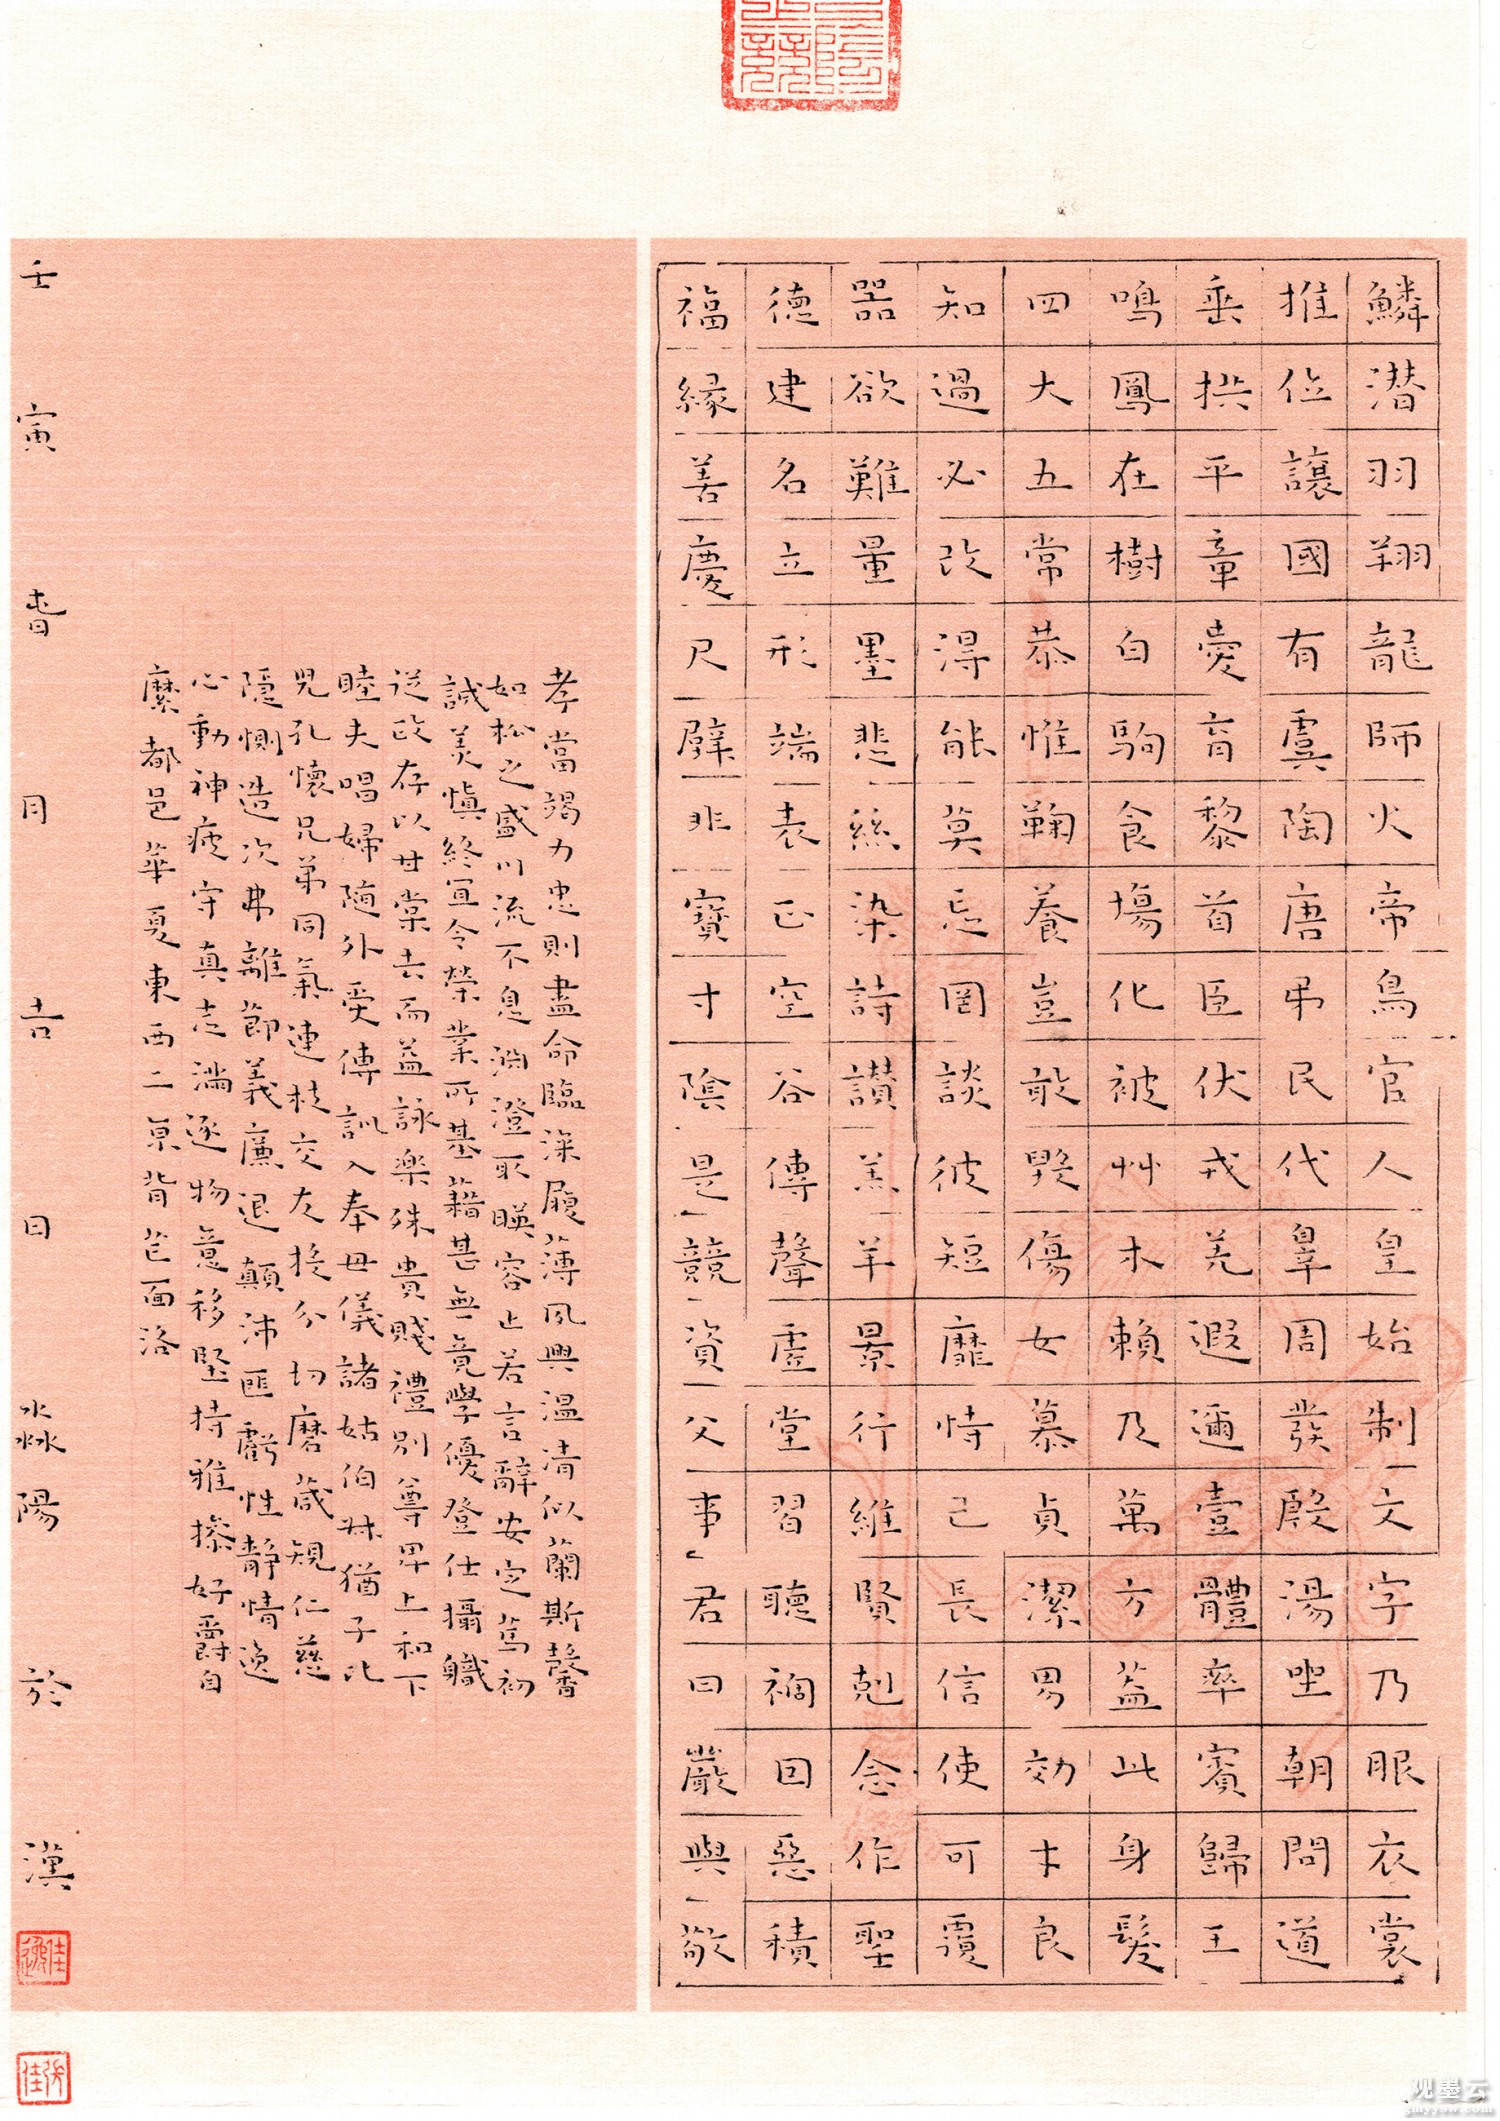 鱗潜羽翔龍師火帝鳥官人皇始制文字乃服衣裳
推位讓國有虞陶唐弔民伐辠周發殷湯坐朝問道
垂拱平章愛育黎首臣伏戎羌遐邇壹體率賓歸王
鳴鳳在樹白駒食場化被艸木賴乃萬方蓋此身髮
四大五常恭惟鞠養豈敢毀傷女慕貞潔男効才良
知過必改得能莫忘罔談彼短靡恃己長信使可覆
器欲難量墨悲絲染詩讚羔羊景行維賢剋念作聖
德建名立形端表正空谷傳聲虛堂習聽禍回惡積
福緣善慶尺璧非寶寸陰是競資父事君曰嚴與敬
孝當竭力忠則盡命臨深履薄夙興溫清似蘭斯馨
如松之盛川流不息淵澄取暎容止若言辭安定篤初
誠美慎終宜令榮業所基藉甚無竟學優登仕攝職
從政存以甘棠去而益詠樂殊貴賤禮別尊卑上和下
睦夫唱婦隨外受傅訓入奉母儀諸姑伯叔猶子比
兒孔懷兄弟同氣連枝交友投分切磨箴規仁慈
隱惻造次弗離節義廉退顛沛匪虧性靜情逸
心動神疲守真志滿逐物意移堅持雅操好爵自
縻都邑華夏東西二京背芒面洛
壬寅春月吉日淼陽於漢
观墨云